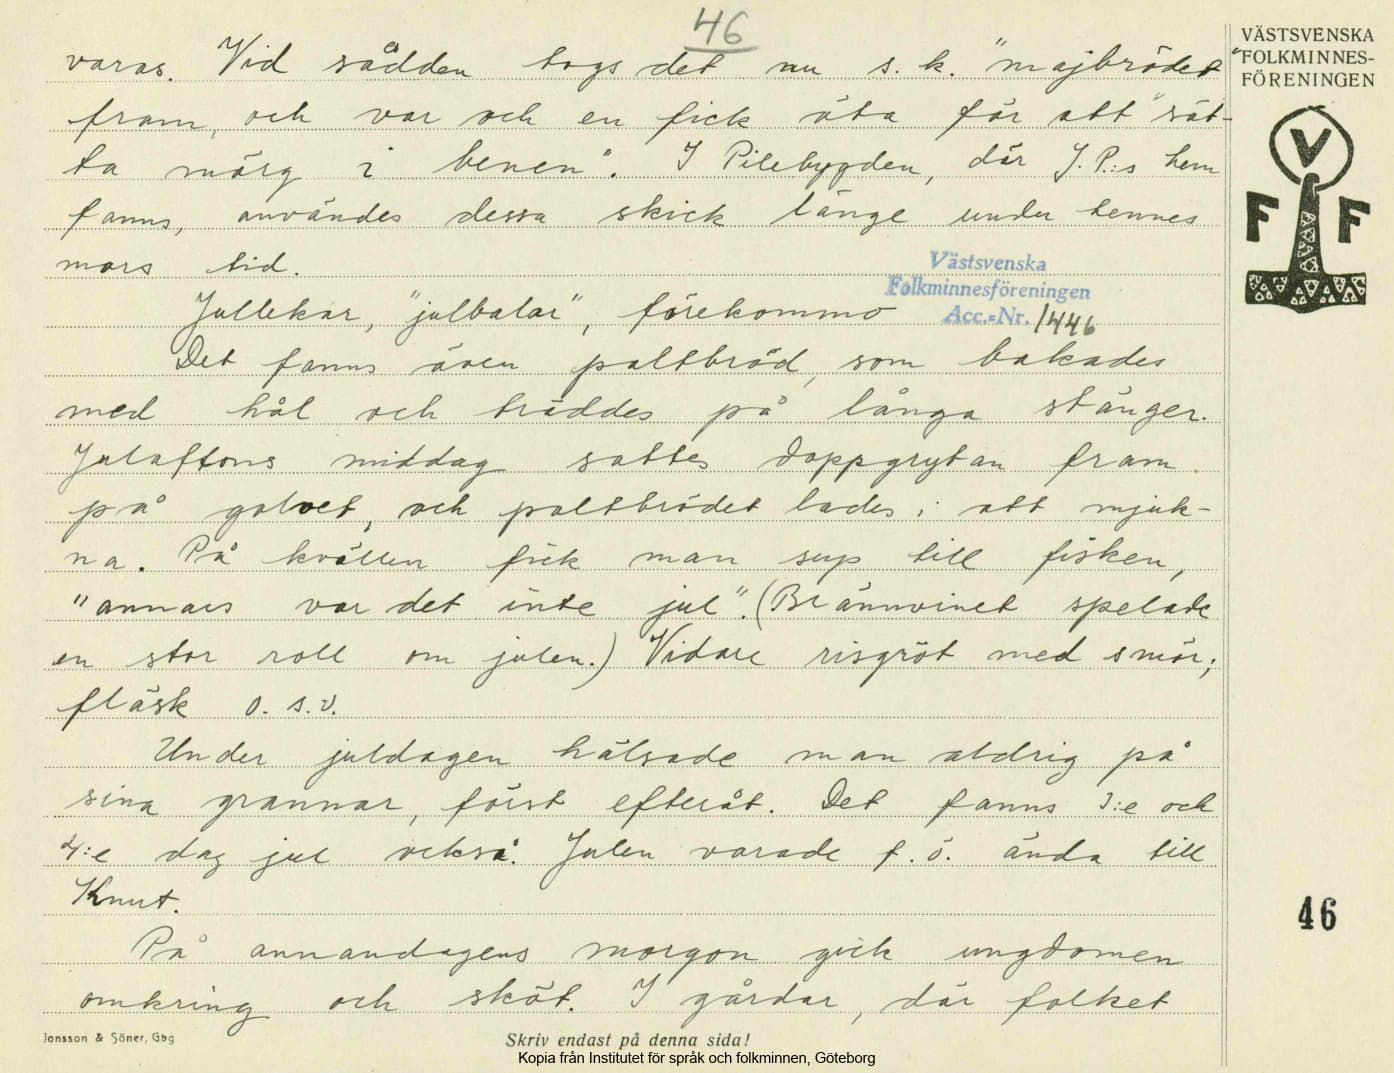 46
varas. Vid sådden togs det nu s. k. "majbrödet"
fram, och var och en fick äta för att "sät-
ta märg i benen". I Pilebygden, där J. P.:s hem
fanns, användes dessa skick länge under hennes
mors tid.
Jullekar, "julbalar", förekommo
Det fanns även paltbröd, som bakades
med hål och träddes på långa stänger.
Julaftons middag sattes doppgrytan fram
på golvet, och paltbrödet lades i att mjuk-
na. På kvällen fick man sup till fisken,
"annars var det inte jul". (Brännvinet spelade
en stor roll om julen.) Vidare risgröt med smör,
fläsk o. s. v.
Under juldagen hälsade man aldrig på
sina grannar, först efteråt. Det fanns 3:e och
4:e dag jul också. Julen varade f. ö. ända till
Knut.
På annandagens morgon gick ungdomen
omkring och sköt. I gårdar, där folket
Västsvenska
Folkminnesföreningen
Acc.-Nr. 1446
VÄSTSVENSKA
FOLKMINNES-
FÖRENINGEN
V
F F
46
Jonsson & Söner, Gbg
Skriv endast på denna sida!
Kopia från Institutet för språk och folkminnen, Göteborg